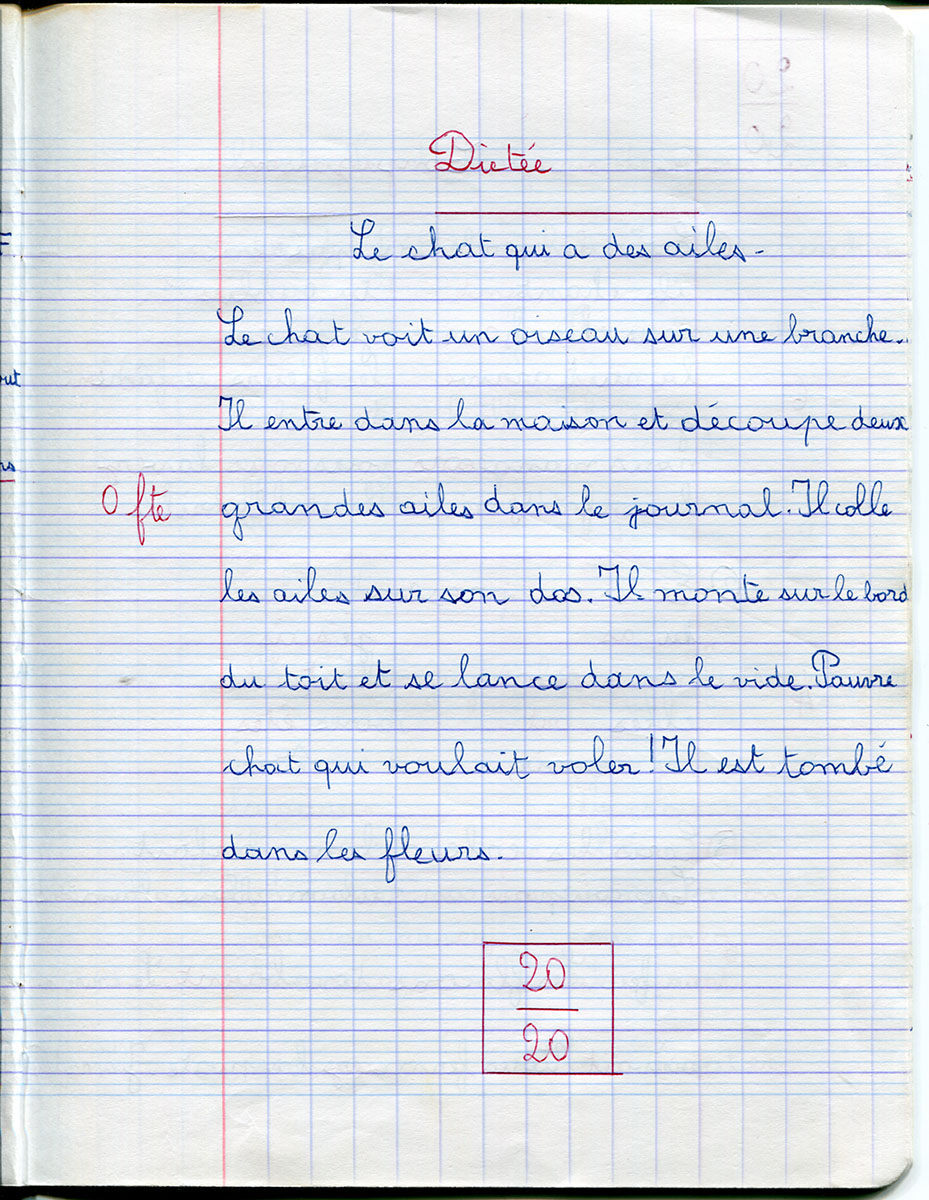 Dictée
Le chat qui a des ailes-
Le chat voit un oiseau sur une branche.
Il entre dans la maison et découpe deux
0 fte
grandes ailes dans le journal. Il colle
les ailes sur son dos. Il monte sur le bord
du toit et se lance dans le vide. Pauvre
chat qui voulait voler! Il est tombé
dans les fleurs.
20
20